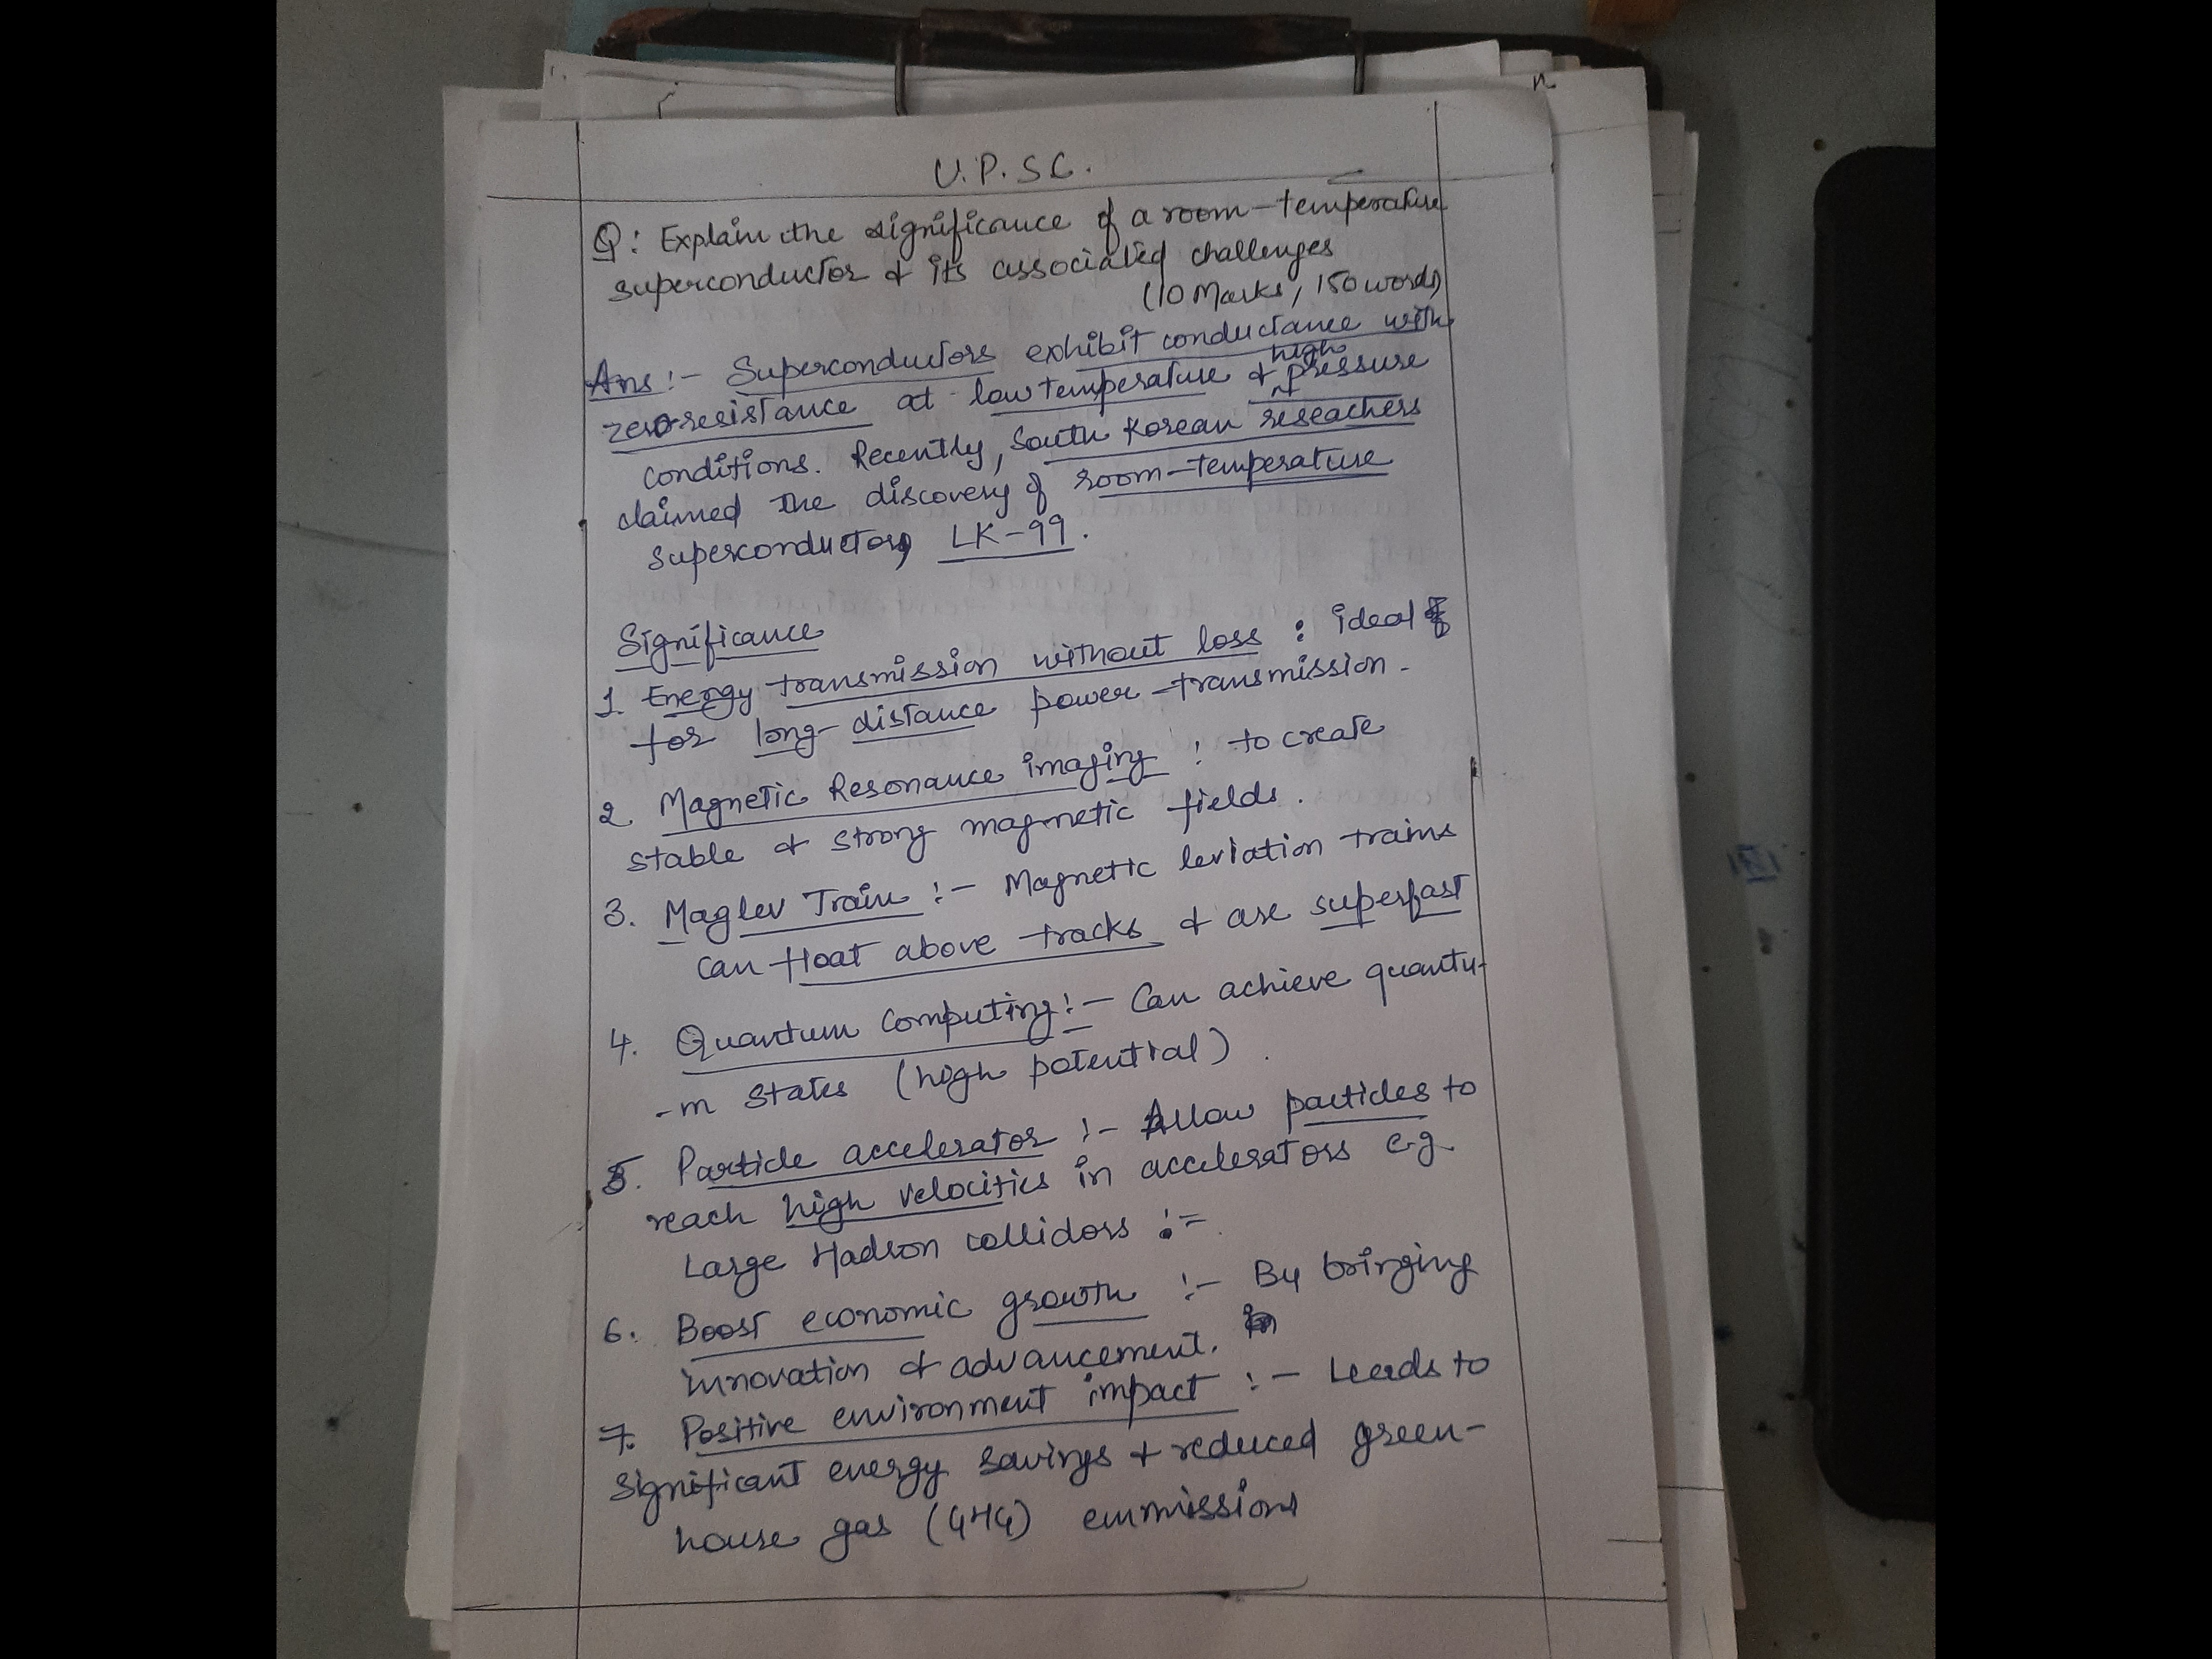 U.P.S.C.
Q: Explain the significance of a room-temperature
superconductor & its associated challenges
(10 Marks, 150 words)
Ans:- Superconductors exhibit conductance with
zero resistance at low temperature & high pressure
conditions. Recently, South Korean reseachers
claimed the discovery of room-temperature
superconductor, LK-99.
Significance
1. Energy transmission without loss : ideal
for long-distance power-transmission.
2. Magnetic Resonance imaging : to create
stable & strong magnetic fields.
3. Maglev Train :- Magnetic leviation trains
can float above tracks & are superfast
4. Quantum Computing:- Can achieve quantu-
-m states (high potential).
5. Particle accelerator :- Allow particles to
reach high velocities in accelerators e.g.
Large Hadron collidors :-
6. Boost economic growth :- By bringing
innovation & advancement.
7. Positive environment impact :- Leads to
significant energy savings & reduced green-
house gas (GHG) emmissions